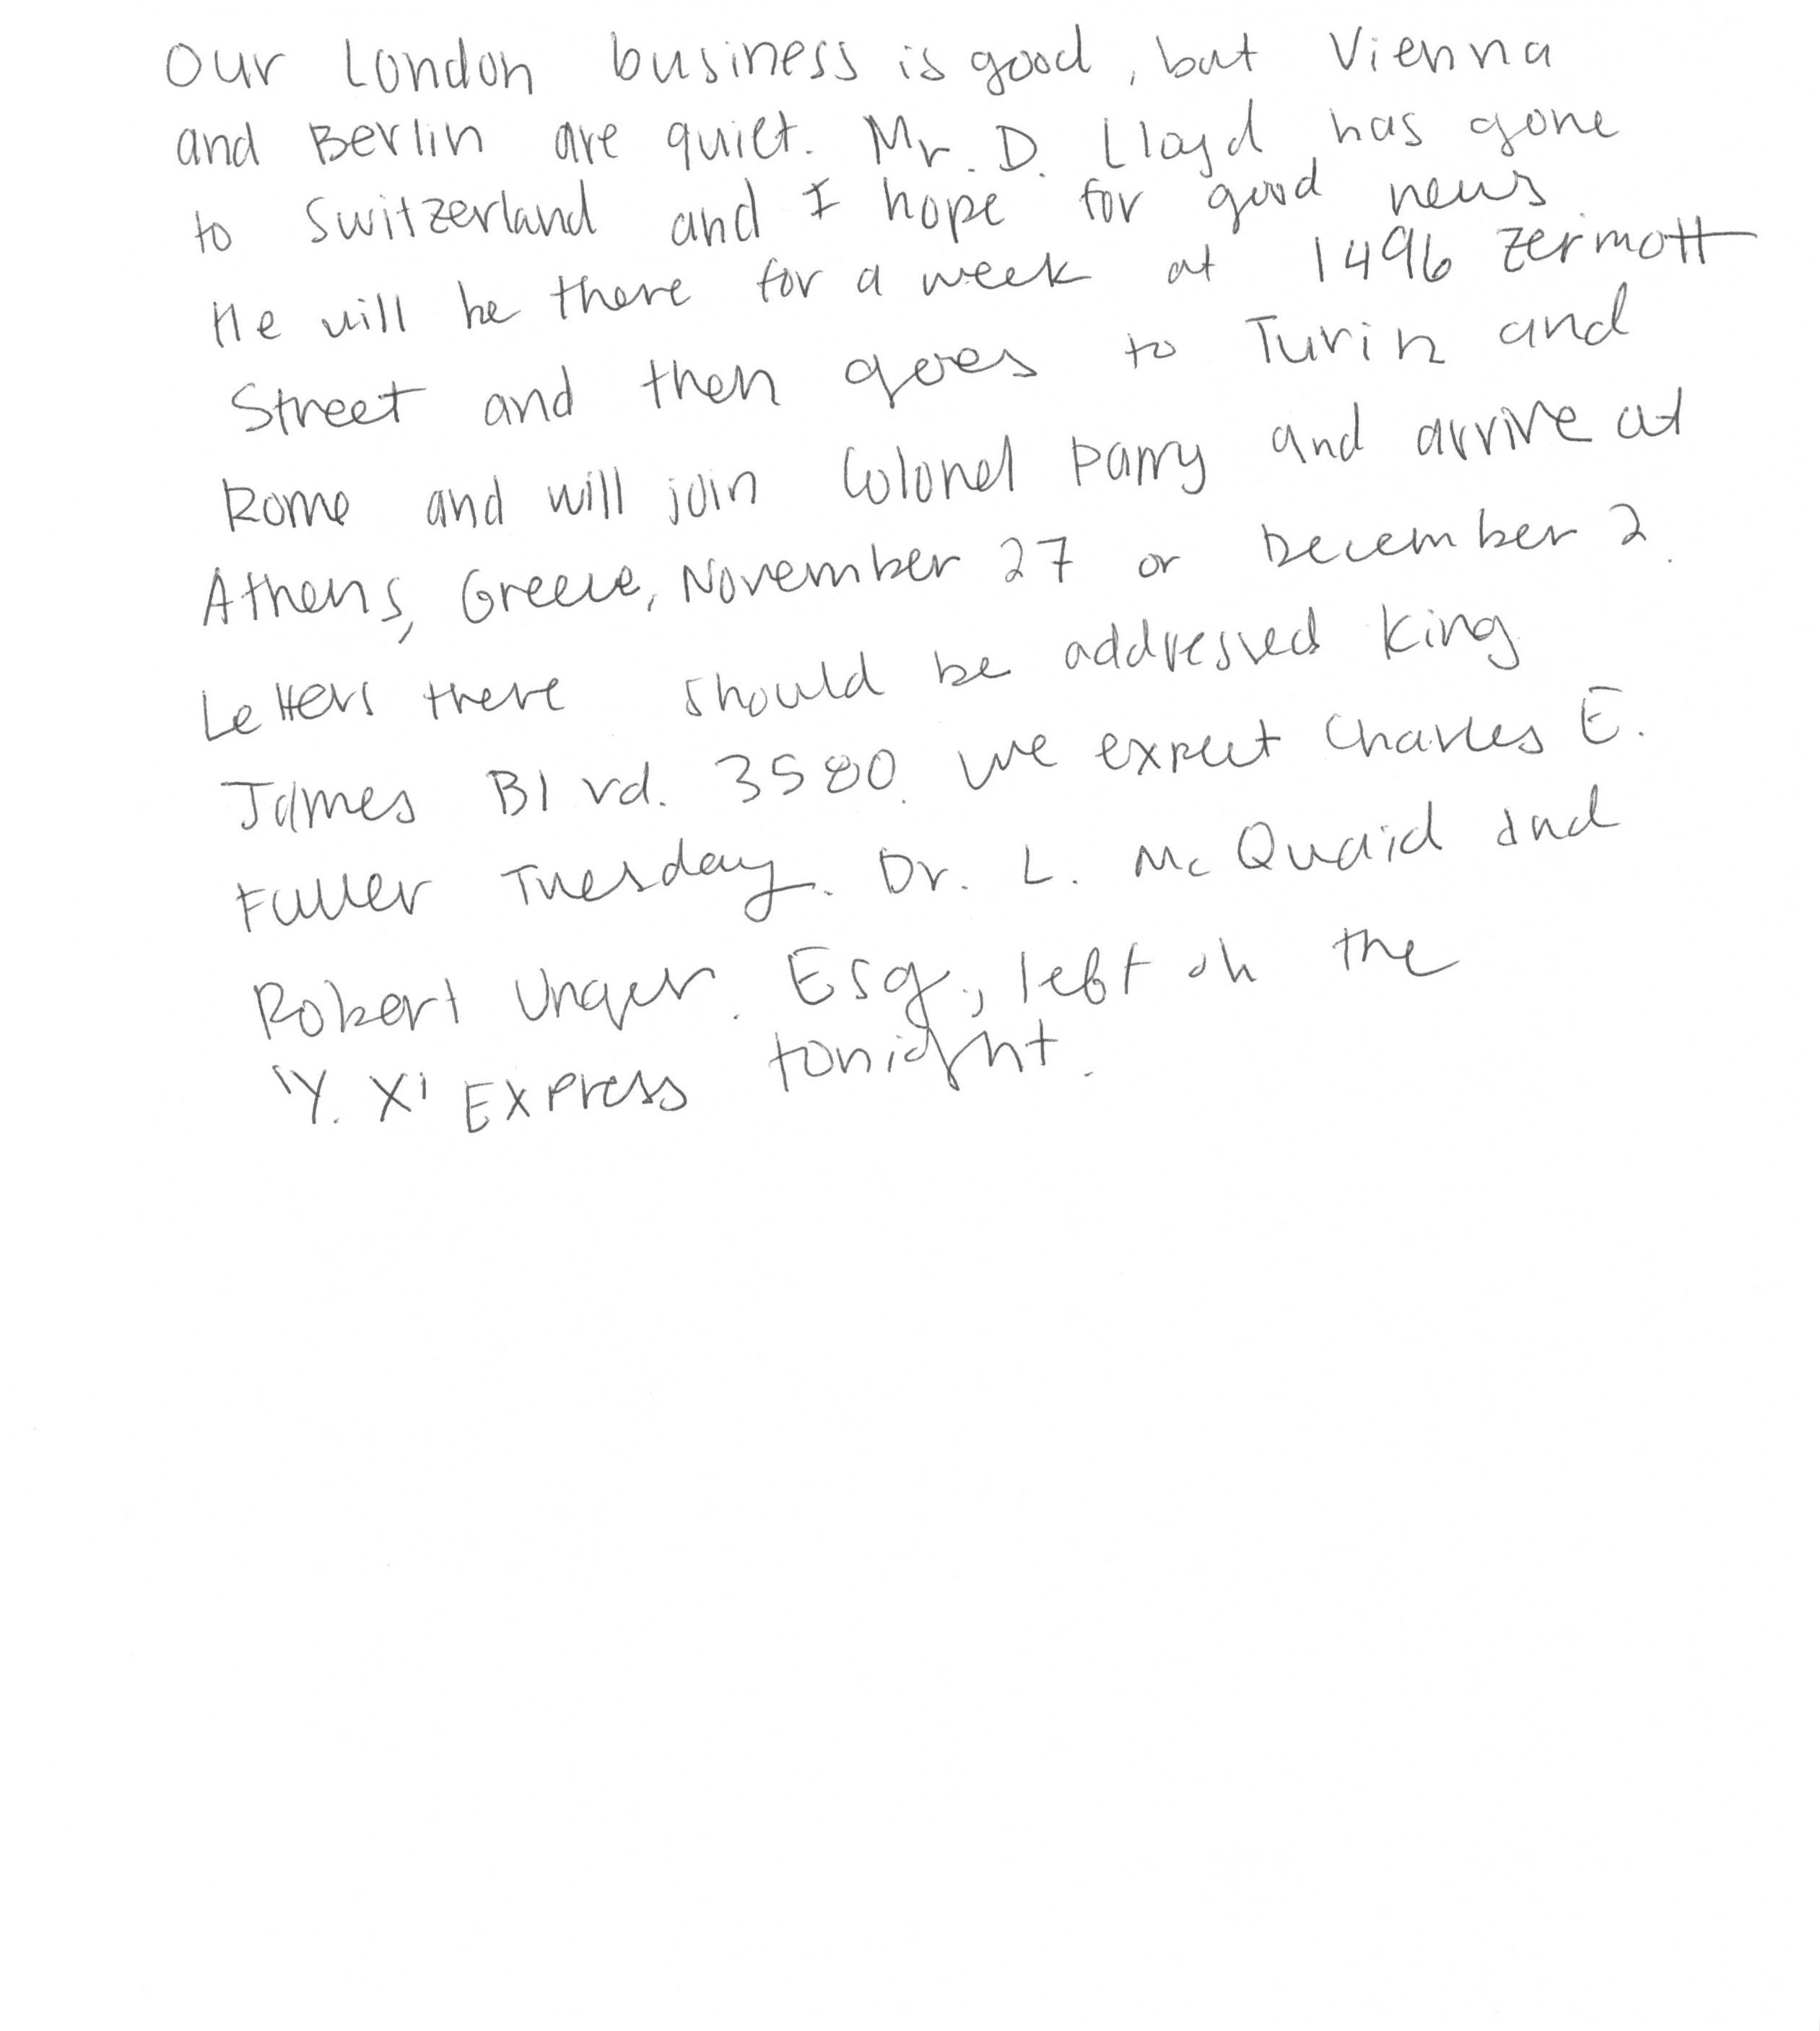 Our London business is good, but Vienna
and Berlin are quiet. Mr. D. Lloyd has gone
to Switzerland and I hope for good news
He will be there for a week at 1496 Zermott
Street and then goes to Turin and
Rome and will join Colonel Parry and arrive at
Athens, Greece, November 27 or December 2.
Letters there should be addressed King
James Blvd. 3580. We expect Charles E.
Fuller Tuesday. Dr. L. McQuaid and
Robert Unger. Esq., left on the
'Y. X' Express tonight.